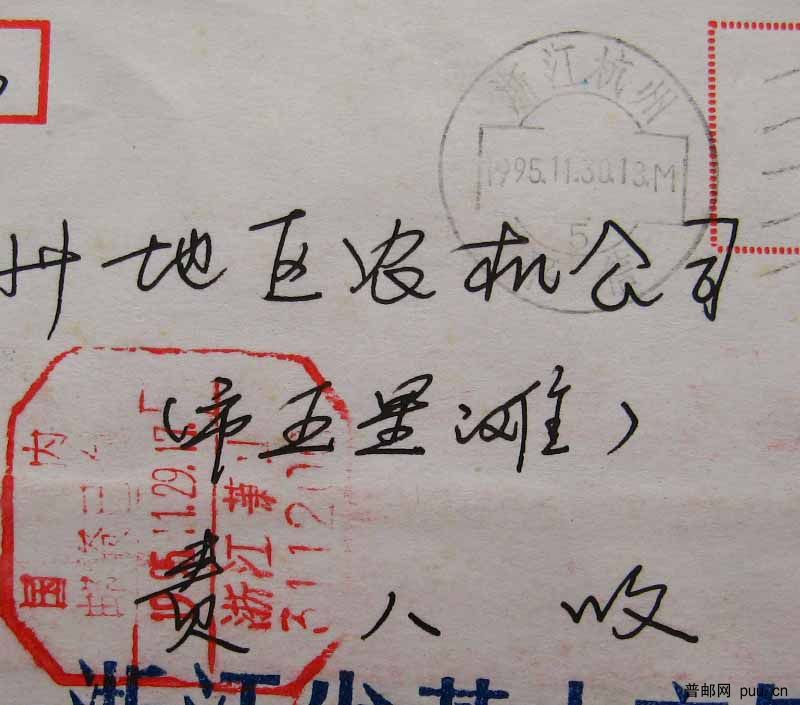 浙江杭州
1995.11.30.13.M
5
州地区农机公司
市五星滩）
责人收
国内
邮资已付
1995.11.29.17
浙江萧江
浙江省
普邮网 puu.cn